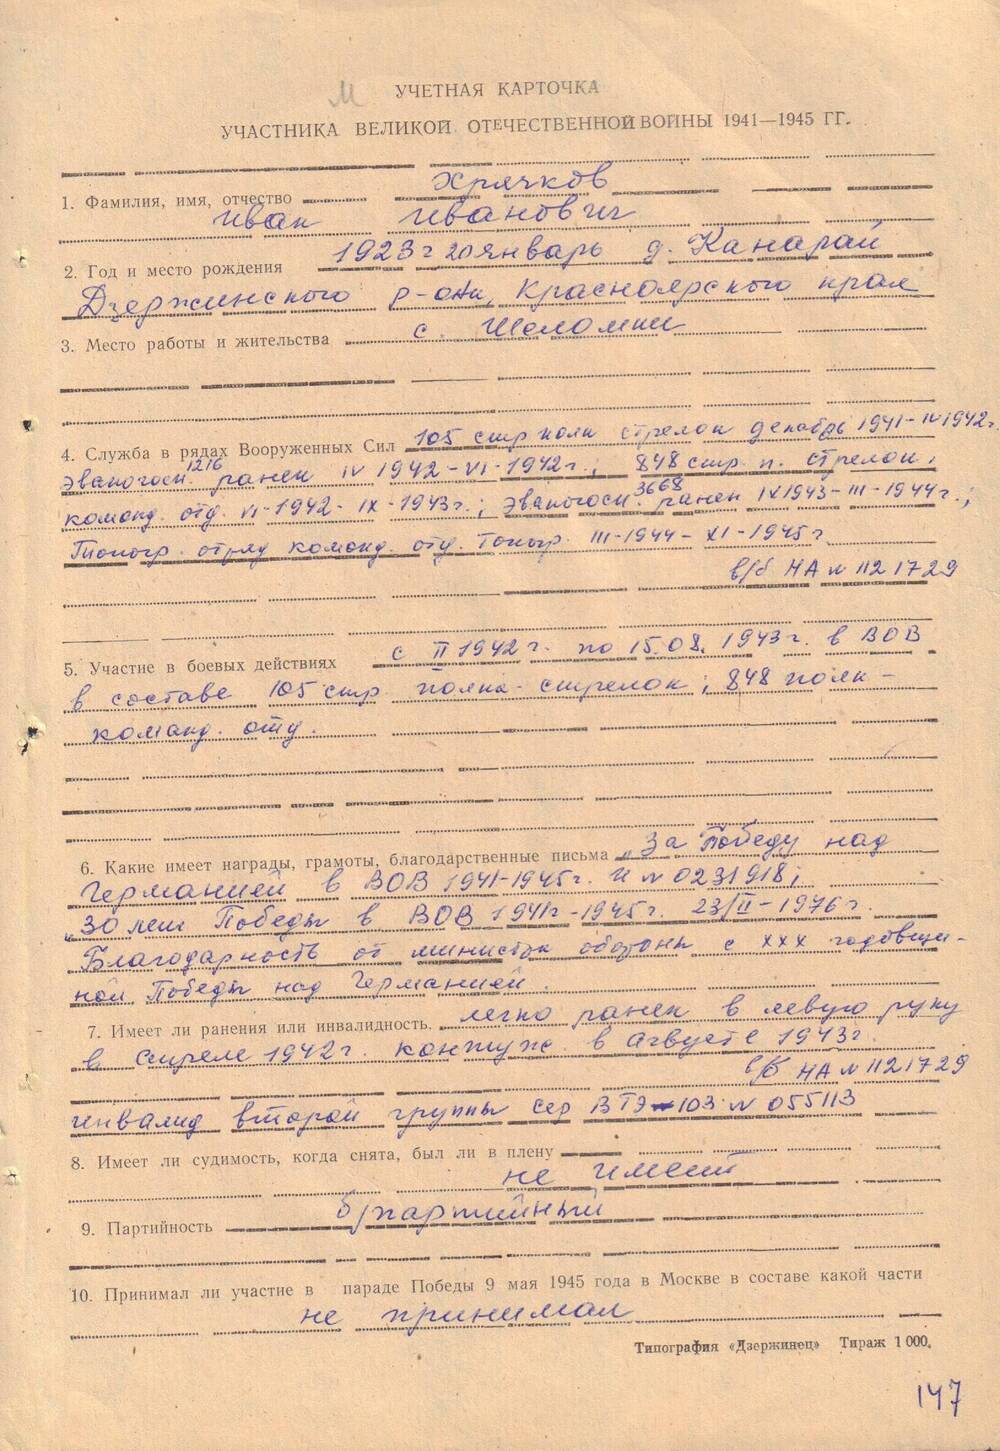 М
УЧЕТНАЯ КАРТОЧКА
УЧАСТНИКА ВЕЛИКОЙ ОТЕЧЕСТВЕННОЙ ВОЙНЫ 1941—1945 ГГ.
1. Фамилия, имя, отчество Хрячков
Иван Иванович
2. Год и место рождения 1923 г 20 январь д. Канарай
Дзержинского р-она, Красноярского края
3. Место работы и жительства с. Шеломки
4. Служба в рядах Вооруженных Сил 105 стр полк стрелок декабрь 1941-IV 1942 г.
эвакогосп. 1216 ранен IV 1942-VI-1942 г.; 848 стр. п. стрелок,
команд. отд. VI-1942-IX-1943 г.; эвакогосп. 3668 ранен IX 1943-III-1944 г.;
Топогр. отряд команд. отд. топогр. III-1944-XI-1945 г.
в/б НА № 1121729
5. Участие в боевых действиях с II 1942 г. по 15.08.1943 г. в ВОВ
в составе 105 стр. полка-стрелок; 848 полк-
команд. отд.
6. Какие имеет награды, грамоты, благодарственные письма „За Победу над
Германией в ВОВ 1941-1945 г. И № 0231918;
„30 лет Победы в ВОВ 1941г-1945 г. 23/II-1976 г.
Благодарность от министра обороны с XXX годовщи-
ной Победы над Германией.
7. Имеет ли ранения или инвалидность. легко ранен в левую руку
в апреле 1942 г. контуж. в августе 1943 г.
в/б НА № 1121729
инвалид второй группы сер ВТЭ-103 № 055113
8. Имеет ли судимость, когда снята, был ли в плену
не имеет
9. Партийность б/партийный
10. Принимал ли участие в параде Победы 9 мая 1945 года в Москве в составе какой части
не принимал
Типография «Дзержинец» Тираж 1 000.
147